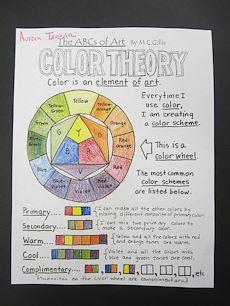 Aurora
The ABCs of Art By M.C. Gillis
COLOR THEORY
Color is an element of art.
Everytime I
use color,
I am creating
a color scheme.
Yellow
Yellow-
Green
Yellow-
Orange
Green
Orange
Blue-
Green
Red-
Orange
Blue
Red
Blue-
Violet
Red-
Violet
Violet
Y
B
R
This is a
color wheel
The most common
color schemes
are listed below.
Primary
I can make all the other colors by
mixing different amounts of primary color.
Secondary
I can mix two primary colors to
make a secondary color.
Warm
Yellow and all the colors with red
and orange tones are warm.
Cool
Violet and all the colors with
blue and green tones are cool.
Complimentary
, etc
on the color wheel are complimentary